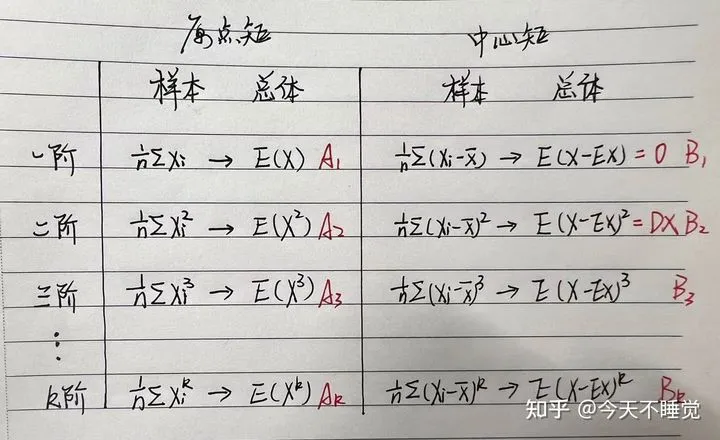 原点矩 中心矩
样本 总体 样本 总体
一阶 1/n ΣXi → E(X) A₁ 1/n Σ(Xi-x̄) → E(X-EX) = 0 B₁
二阶 1/n ΣXi² → E(X²) A₂ 1/n Σ(Xi-x̄)² → E(X-EX)² = DX B₂
三阶 1/n ΣXi³ → E(X³) A₃ 1/n Σ(Xi-x̄)³ → E(X-EX)³ B₃
⋮
k阶 1/n ΣXiᵏ → E(Xᵏ) Aₖ 1/n Σ(Xi-x̄)ᵏ → E(X-EX)ᵏ Bₖ
知乎 @今天不睡觉